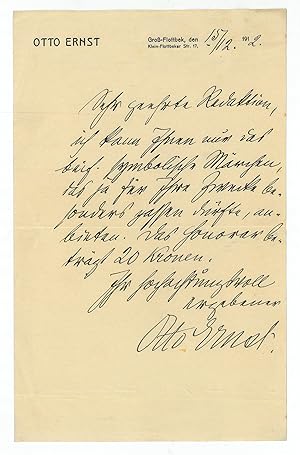 OTTO ERNST
Groß-Flottbek, den 15/12. 1912.
Klein-Flottbeker Str. 17.
Sehr geehrte Redaktion,
ich kann Ihnen nur das
beif. symbolische Märchen,
das ja für Ihre Zwecke be-
sonders passen dürfte, an-
bieten. Das Honorar be-
trägt 20 Kronen.
Ihr hochachtungsvoll
ergebener
Otto Ernst.